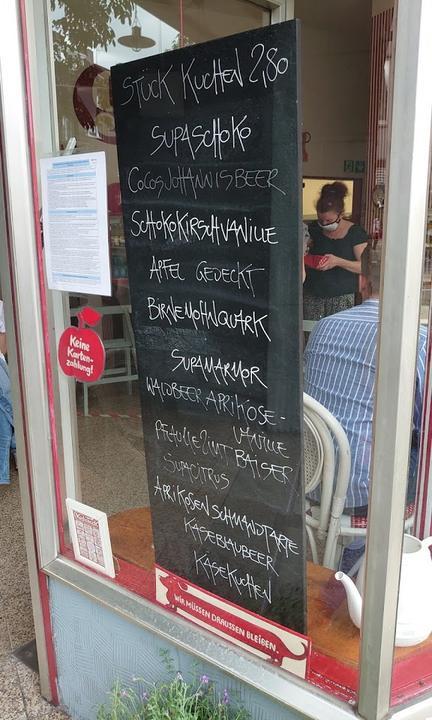 STÜCK KUCHEN 2,80
SUPASCHOKO
COCOSJOHANNISBEER
SCHOKOKIRSCHVANILLE
APFEL GEDECKT
BIRNEMOHNQUARK
SUPAMARMOR
WALDBEER APRIKOSE-
VANILLE
PFLAUMEZIMT BAISER
SUPACITRUS
APRIKOSEN SCHMANDTARTE
KÄSEBLAUBEER
KÄSEKUCHEN
Keine
Karten-
zahlung!
WIR MÜSSEN DRAUSSEN BLEIBEN.